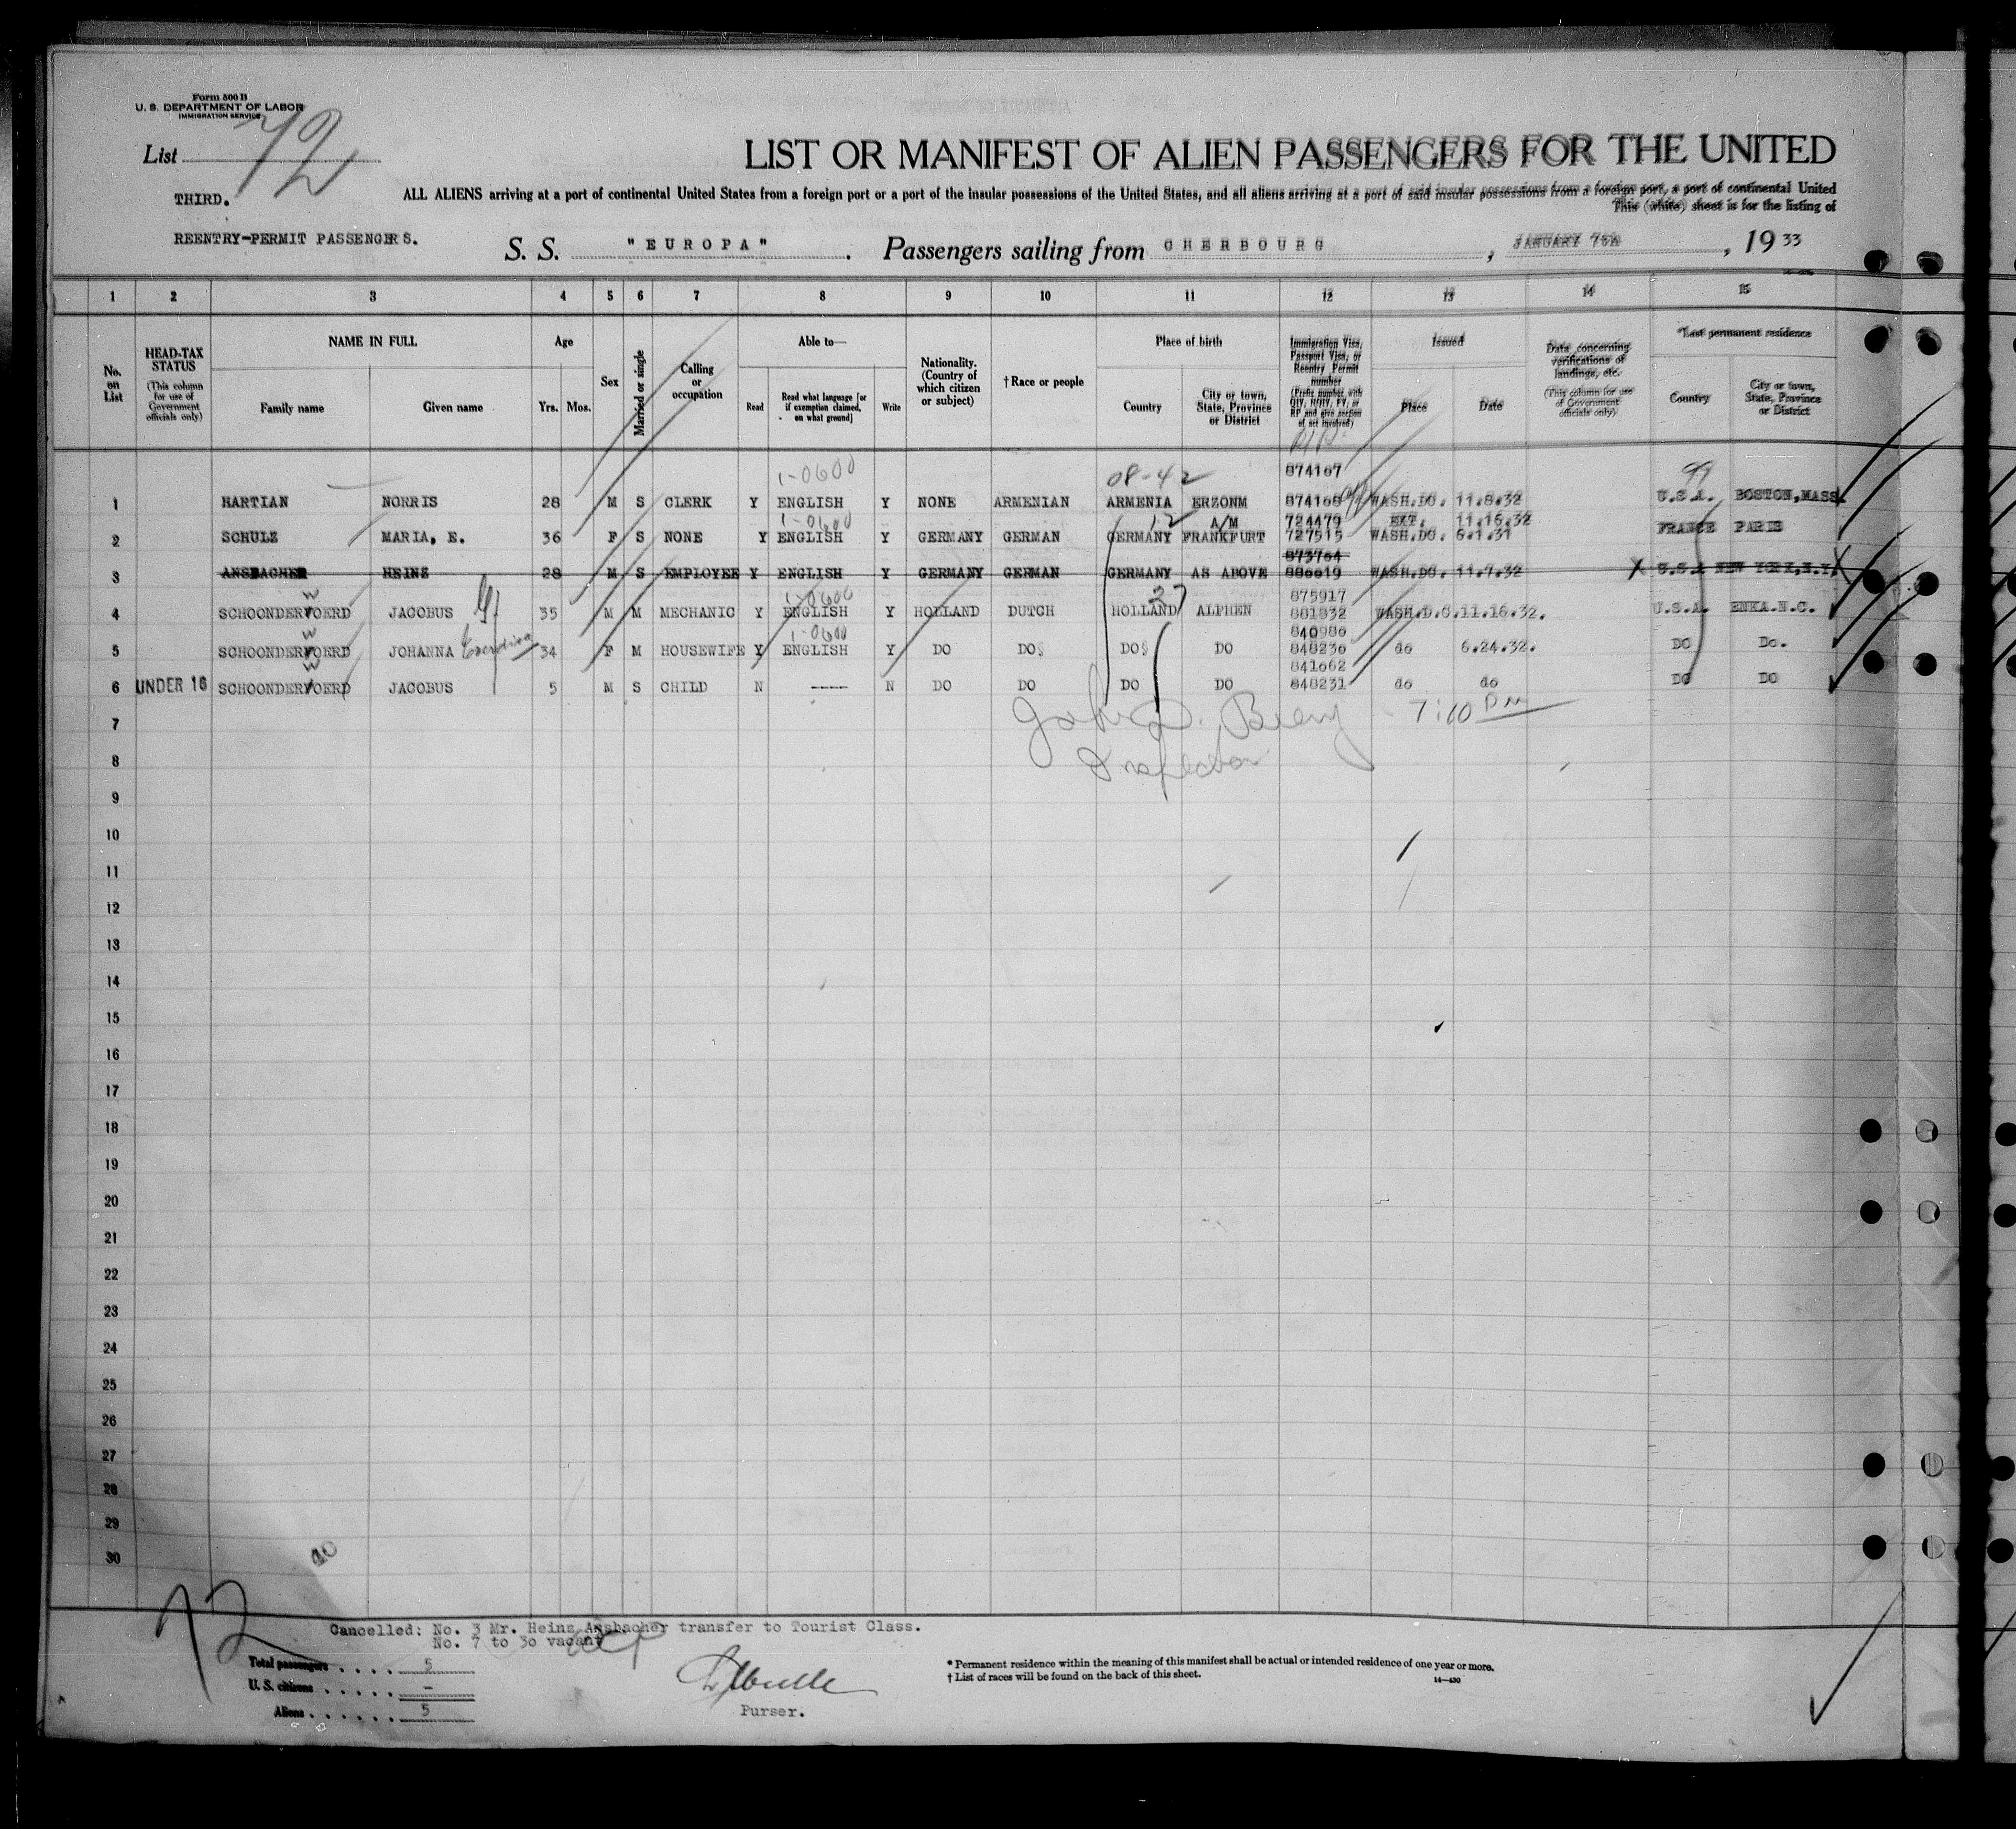 Form 500 B
U. S. DEPARTMENT OF LABOR
IMMIGRATION SERVICE
List 72
LIST OR MANIFEST OF ALIEN PASSENGERS FOR THE UNITED
THIRD.
ALL ALIENS arriving at a port of continental United States from a foreign port or a port of the insular possessions of the United States, and all aliens arriving at a port of said insular possessions from a foreign port, a port of continental United
This (white) sheet is for the listing of
REENTRY-PERMIT PASSENGERS.
S. S. "EUROPA". Passengers sailing from CHERBOURG, JANUARY 7th, 1933
1 2 3 4 5 6 7 8 9 10 11 12 13 14 15
No. on List
HEAD-TAX STATUS (This column for use of Government officials only)
NAME IN FULL
Family name Given name
Age
Yrs. Mos.
Sex
Married or single
Calling or occupation
Able to—
Read
Read what language [or if exemption claimed, on what ground]
Write
Nationality. (Country of which citizen or subject)
† Race or people
Place of birth
Country
City or town, State, Province or District
Immigration Visa, Passport Visa, or Reentry Permit number (Prefix number with QIV, NQIV, PV, or RP and give section of act involved)
Issued
Place Date
Data concerning verifications of landings, etc. (This column for use of Government officials only)
*Last permanent residence
Country
City or town, State, Province or District
1-0600 08-42 874167 99
1 HARTIAN NORRIS 28 M S CLERK Y ENGLISH Y NONE ARMENIAN ARMENIA ERZONM 874168 WASH.DC. 11.8.32 U.S.A. BOSTON,MASS.
1-0600 12 A/M 724479 EXT. 11.16.32
2 SCHULZ MARIA, E. 36 F S NONE Y ENGLISH Y GERMANY GERMAN GERMANY FRANKFURT 727515 WASH.DC. 6.1.31 FRANCE PARIS
873764
3 ANSBACHER HEINZ 28 M S EMPLOYEE Y ENGLISH Y GERMANY GERMAN GERMANY AS ABOVE 886619 WASH.DC. 11.7.32 X U.S.A NEW YORK,N.Y.
W 1-0600 27 875917
4 SCHOONDERVOERD JACOBUS 35 M M MECHANIC Y ENGLISH Y HOLLAND DUTCH HOLLAND ALPHEN 881832 WASH.D.C. 11.16.32. U.S.A. ENKA.N.C.
W 1-0600 840986
5 SCHOONDERVOERD JOHANNA Everdina 34 F M HOUSEWIFE Y ENGLISH Y DO DO DO DO 848236 do 6.24.32. DO Do.
W 841662
6 UNDER 16 SCHOONDERVOERD JACOBUS 5 M S CHILD N ---- N DO DO DO DO 848231 do do DO DO
7 7:10 PM
8 Inspector
9
10
11
12
13
14
15
16
17
18
19
20
21
22
23
24
25
26
27
28
29
30
40
72
Cancelled: No. 3 Mr. Heinz Ansbacher transfer to Tourist Class.
No. 7 to 30 vacant
Total passengers . . . . 5
U. S. citizens . . . . . –
Aliens . . . . . . 5
Purser.
* Permanent residence within the meaning of this manifest shall be actual or intended residence of one year or more.
† List of races will be found on the back of this sheet.
14—430